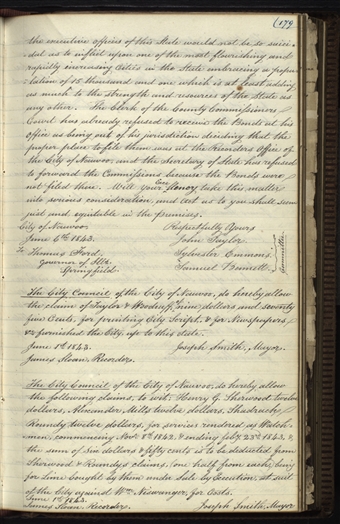 (179
the executive officers of this State would not be so suici-
dal as to inflict upon one of the most flourishing and
rapidly increasing Cities in the State embracing a popu-
lation of 15 thousand and one which is at least adding
as much to the strength and resources of the State as
any other. The Clerk of the County Commissioners
Court has already refused to receive the Bonds at his
office as being out of his jurisdiction deciding that the
proper place to file them was at the Recorders Office of
the City of Nauvoo and the Secretary of State has refused
to forward the Commissions because the Bonds were
not filed there. Will your Excy Honor take this matter
into serious consideration, and act as to you shall seem
just and equitable in the premises.
City of Nauvoo Respectfully Yours
June 6th 1843. John Taylor
To Thomas Ford. Sylvester Emmons
Governor of Ills. Samuel Bennett
Springfield. Committee
The City Council of the City of Nauvoo, do hereby allow
the claim of Taylor & Woodruff, nine dollars and seventy
five Cents, for printing City Script, & for Newspapers,
furnished the City, up to this date.
June 1st 1843. Joseph Smith, Mayor.
James Sloan Recorder.
The City Council of the City of Nauvoo, do hereby allow
the following claims, to wit, Henry G. Sherwood twelve
dollars, Alexander Mills twelve dollars, Shadrach
Roundy twelve dollars, for services rendered as Watch-
men, commencing Novr 8th 1842, & ending Feby 23rd 1843, &
the sum of Six dollars & fifty cents is to be deducted from
Sherwood & Roundy's claims, (one half from each) being
for lime bought by them under Sale by Execution, at suit
of the City against Wm Niswanger, for Costs.
June 1st 1843.
James Sloan Recorder. Joseph Smith, Mayor